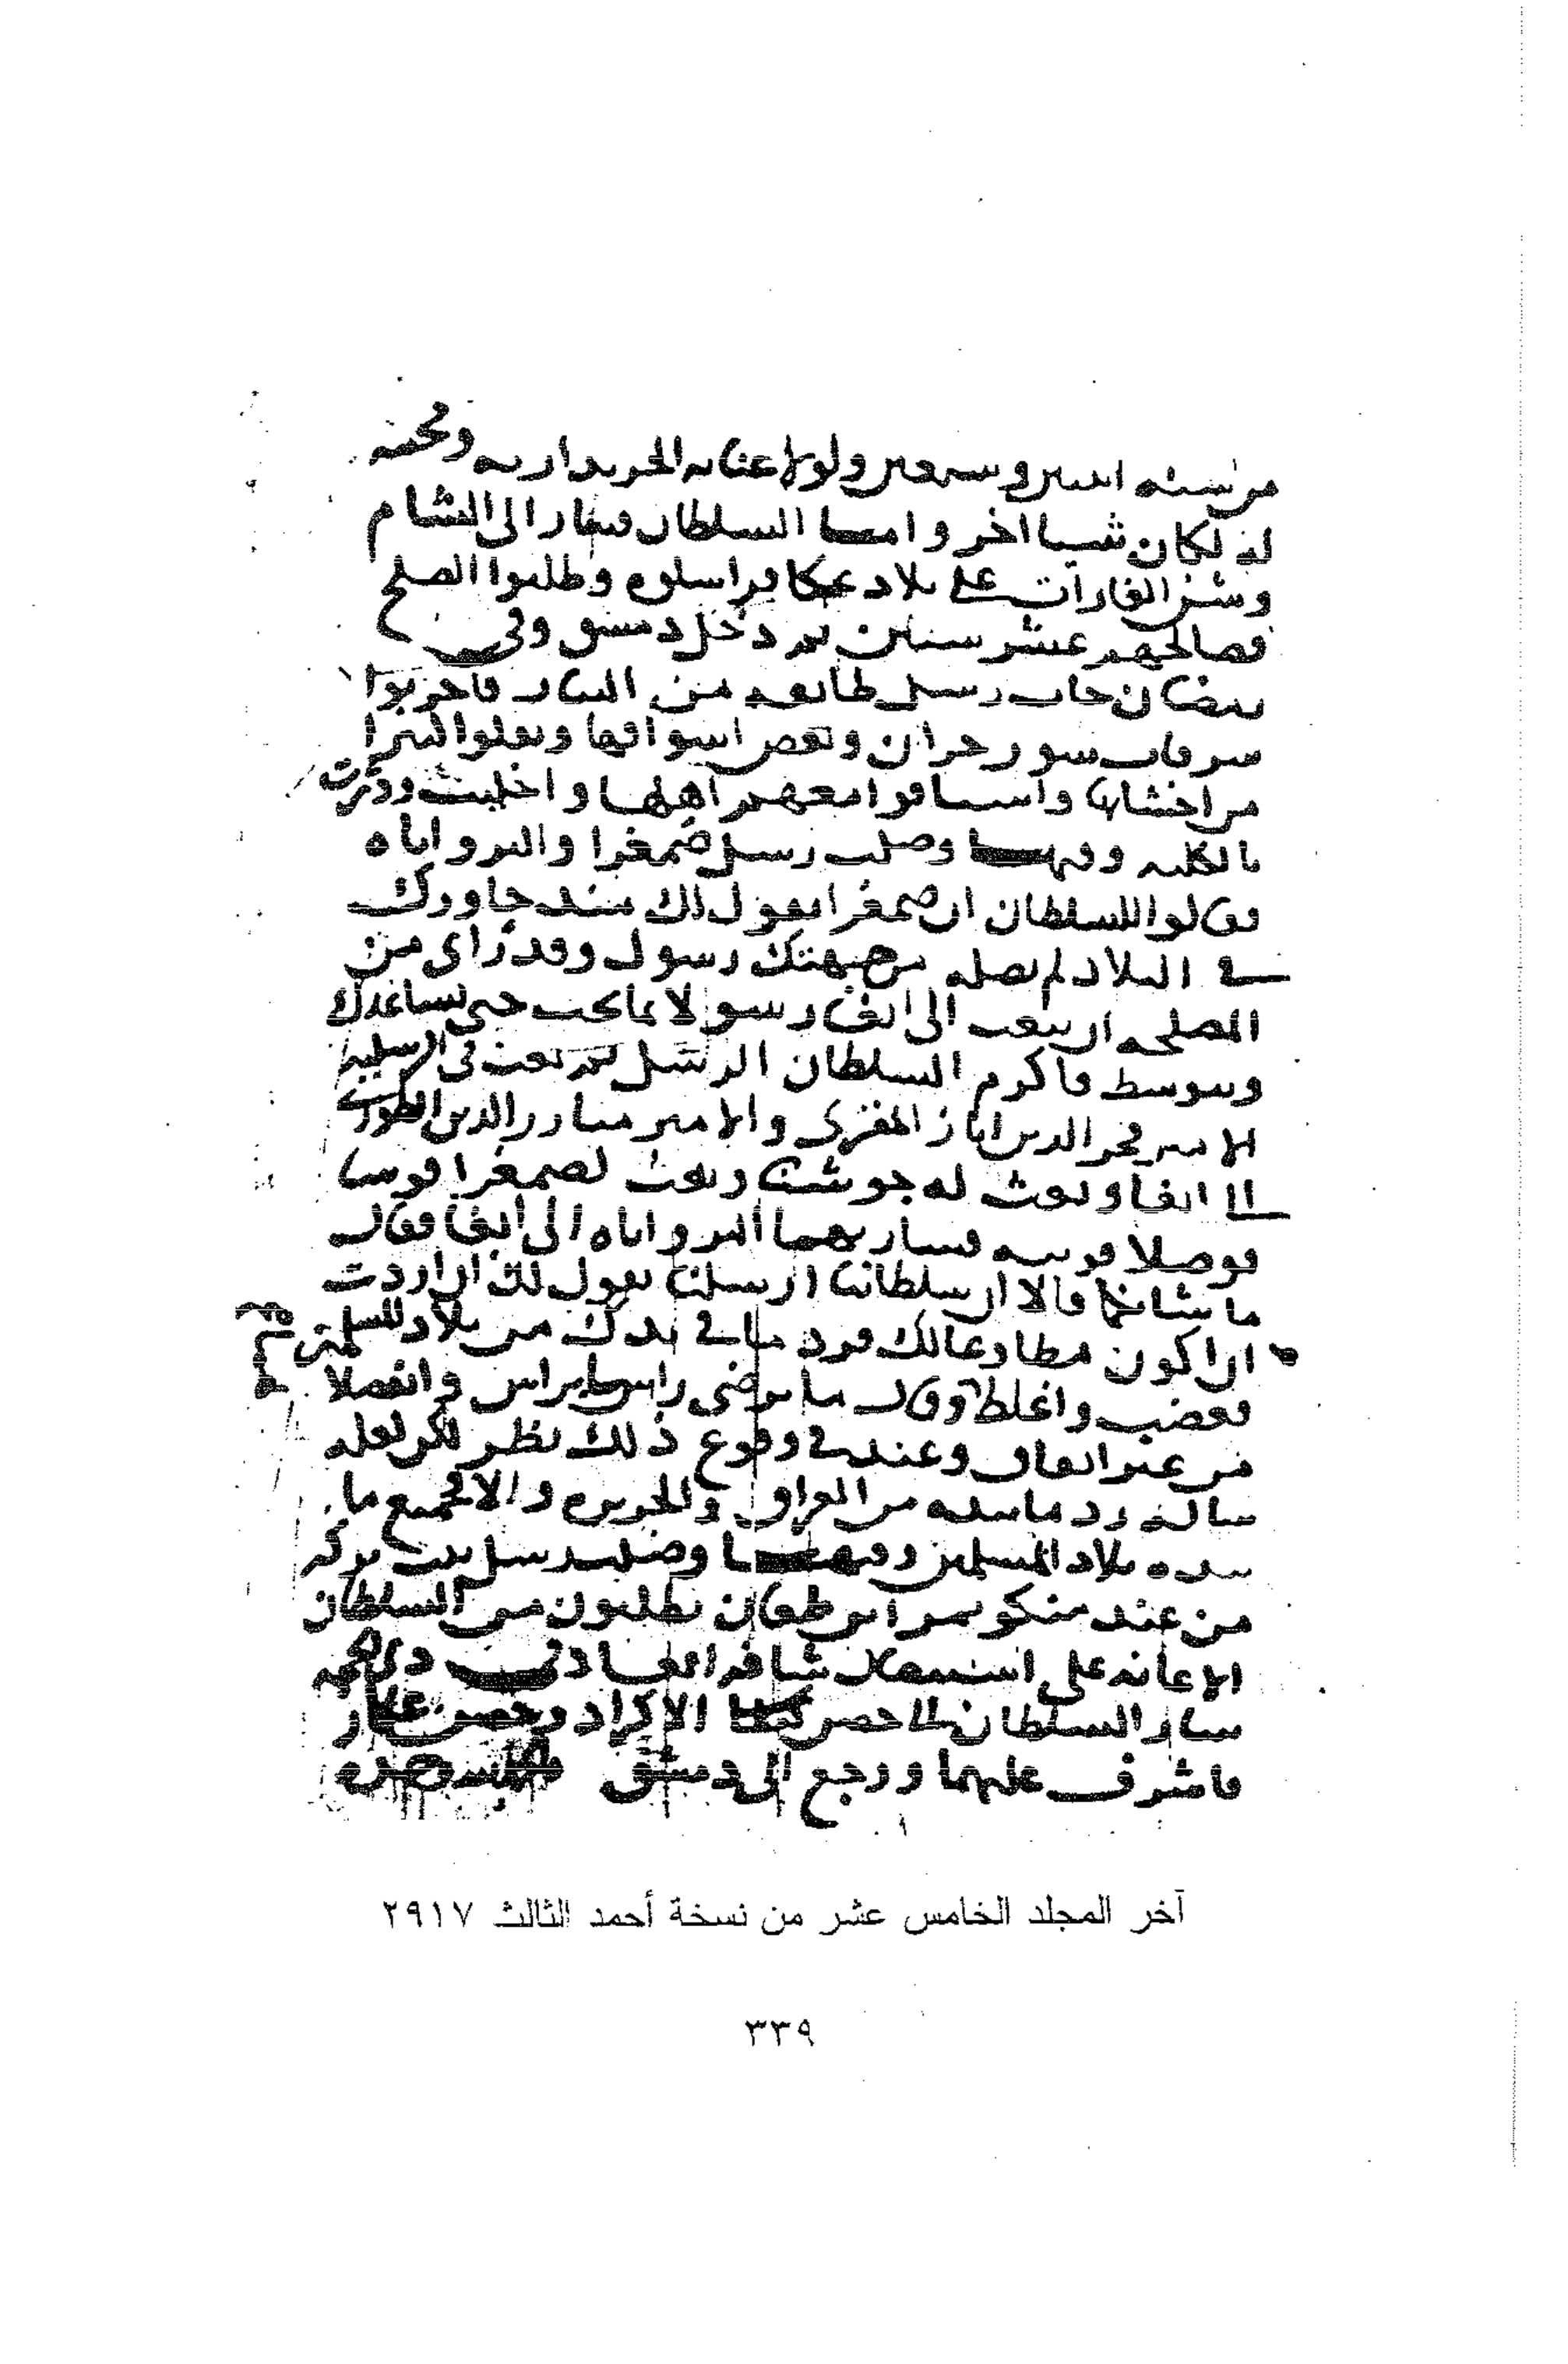 من سنة اثنتين وسبعين ولولا عناية الخزندارية ومحبته
له لكان شيا اخر وامـا السلطان فسار الى الشام
وشن الغارات على بلاد عكا فراسلوه وطلبوا الصلح
فصالحهم عشر سنين ثم دخل دمشق وفي
رمضان جات رسل طائفة من التتار فاخربوا
شرفات سور حران وبعض اسواقها ونقلوا كثيرا
من اخشابها واستاقوا معهم اهلها واخليت ودثرت
بالكلية وفيهـا وصلت رسل صمغرا والبرواناه
فقالوا للسلطان ان صمغرا يقول لك منذ جاورك
في البلاد لم يصله من جهتك رسول وقد راى من
المصلحة ان تبعث الى ابغا رسولا بما تحب حتى نساعدك
ونتوسط فاكرم السلطان الرسل ثم بعث في الرسلية
الامير فخر الدين اياز المقرى والامير مبارز الدين الطورى
الى ابغا وبعث له جوشنا وبعث لصمغرا قوسا
فوصلا قونية فسار بهما البرواناه الى ابغا فقال
ما شانكما قالا ان سلطاننا ارسلنا يقول لك ان اردت
ان اكون مطاوعا لك فرد ما في يدك من بلاد المسلمين
فغضب واغلظ وقال ما يرضى راسا براس وانفصلا
من غير اتفاق وعندي في وقوع ذلك نظر لكن لعله
ساله رد ما بيده من العراق والجزيرة والا فجميع ما
بيده بلاد المسلمين وفيهـا وصلت رسل بيت بركه
من عند منكوتمر ابن طغان يطلبون من السلطان
الاعانة على استئصال شافة ابغا وفي ذي الحجة
سار السلطان الى حصن الاكراد وحصن عكار
فاشرف عليهما ورجع الى دمشق
آخر المجلد الخامس عشر من نسخة أحمد الثالث ٢٩١٧
٣٣٩